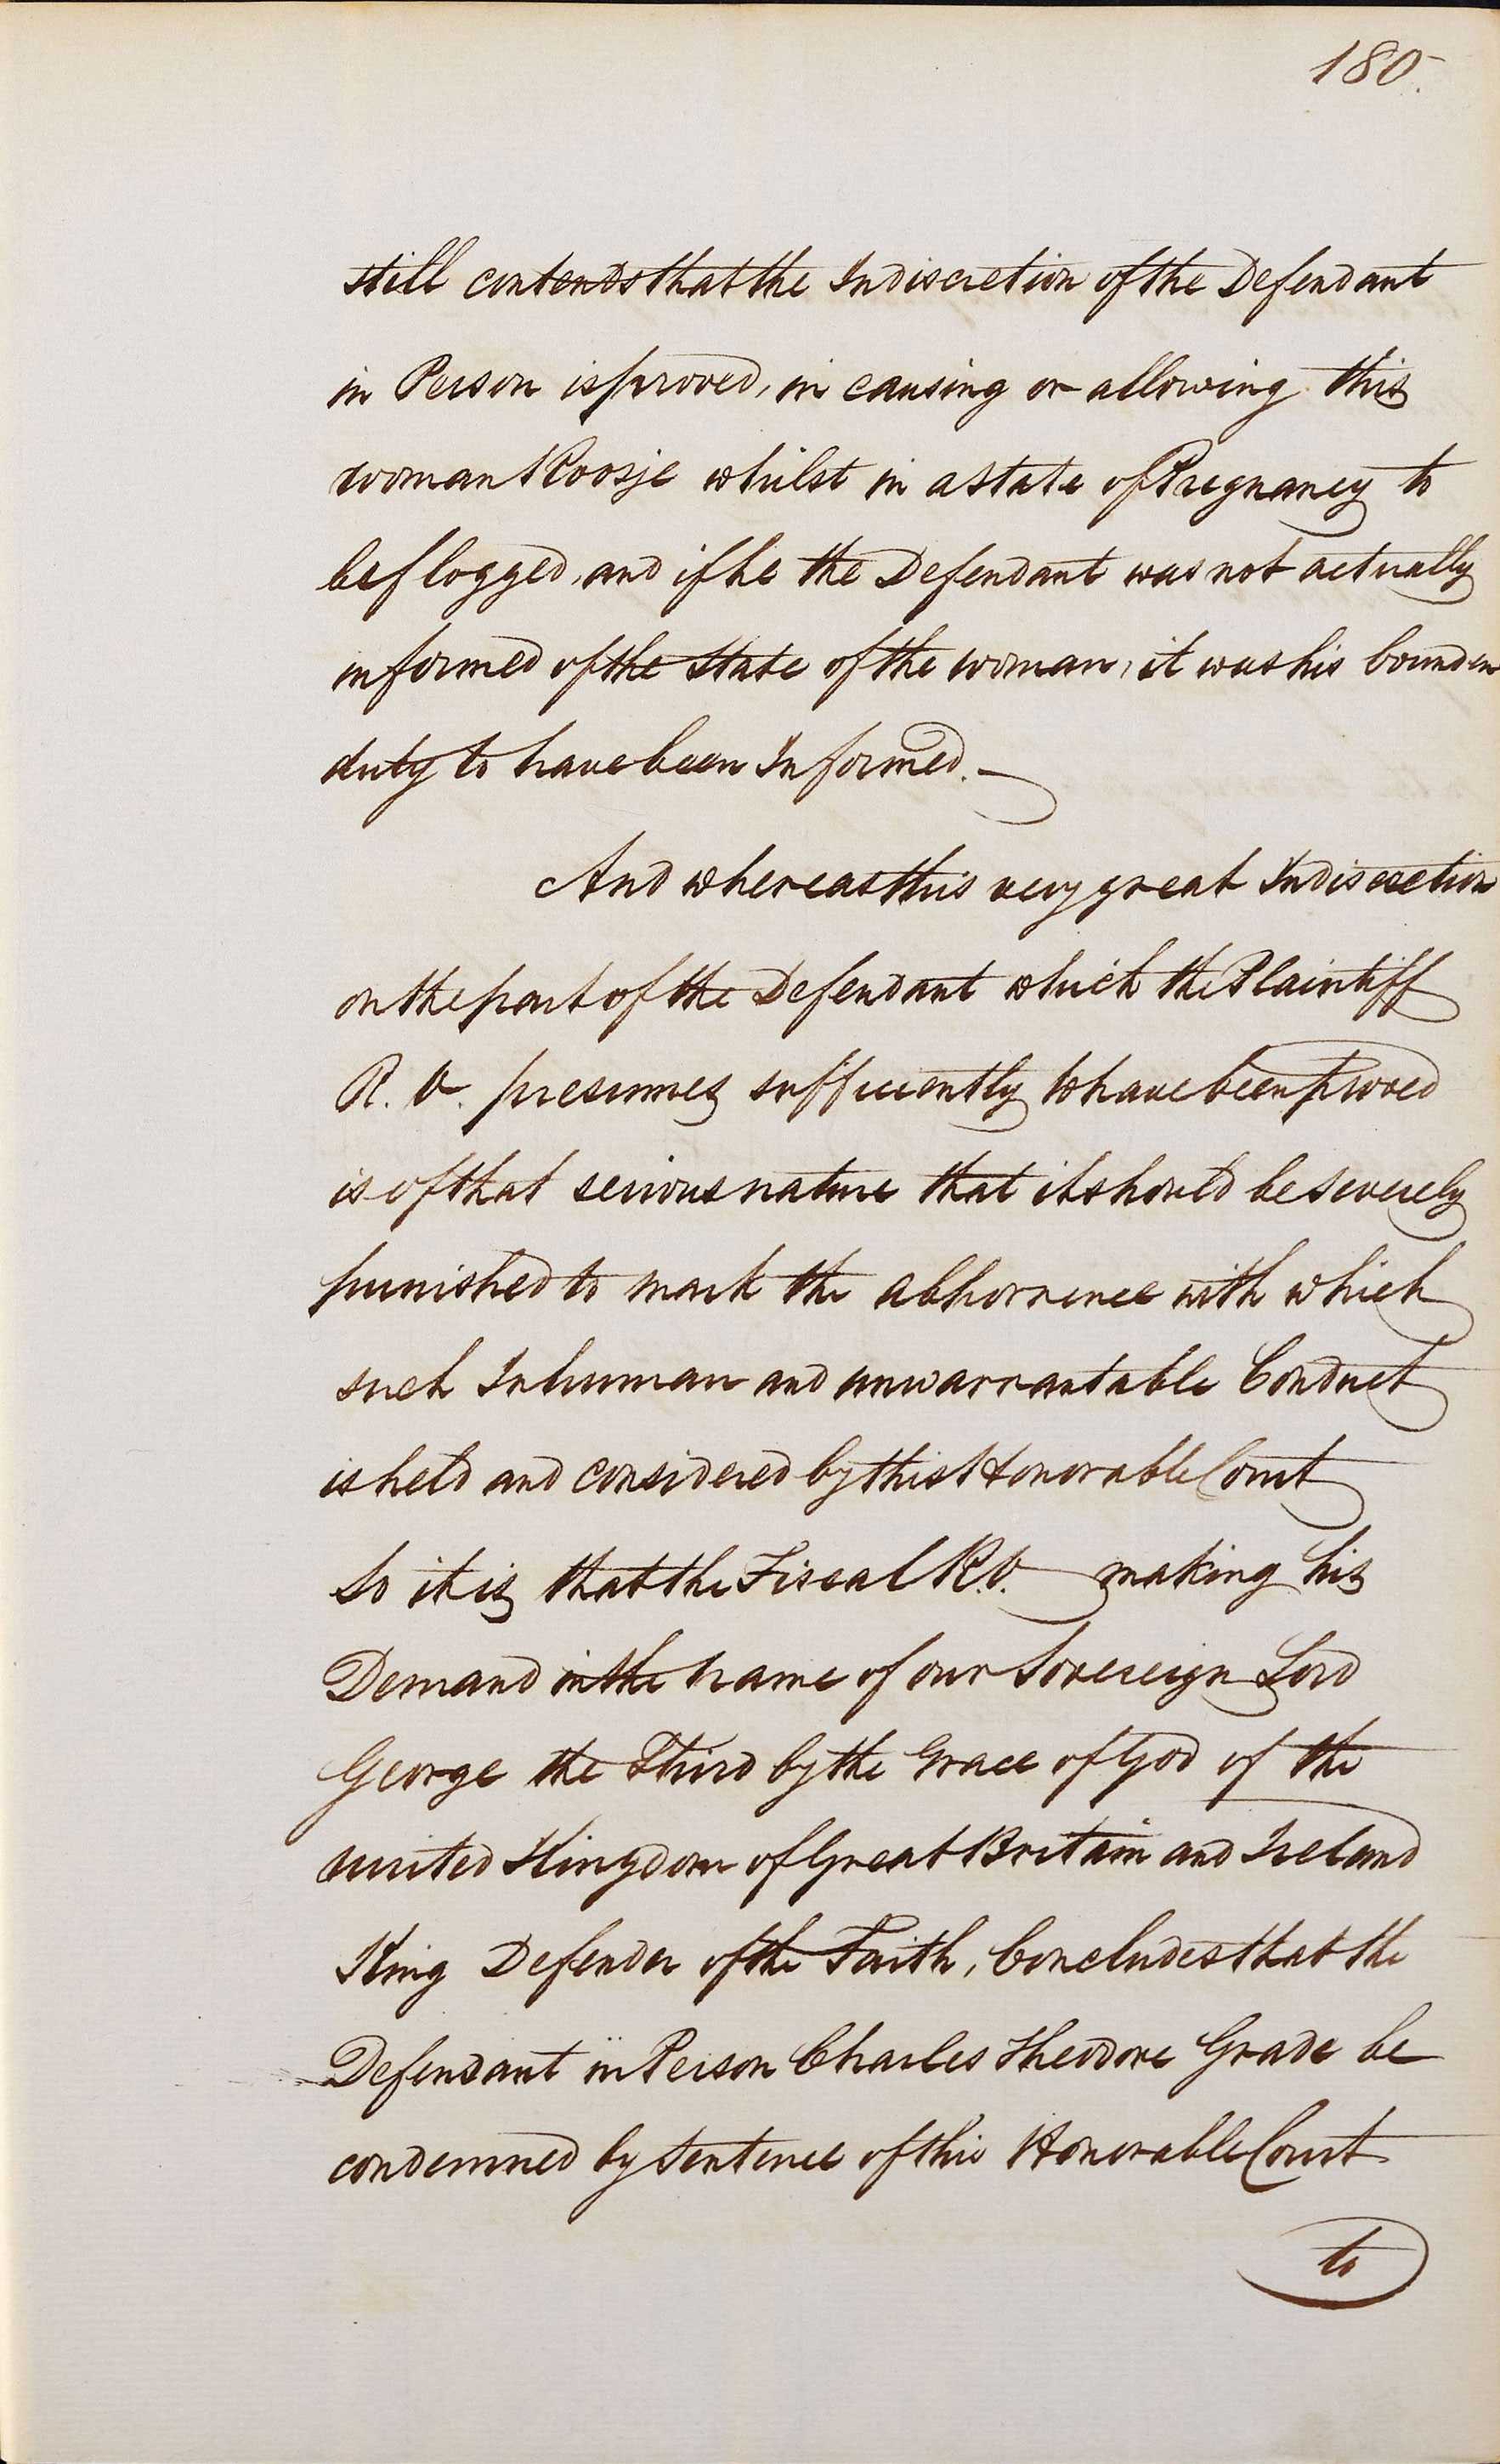 180.
still contends that the Indiscretion of the Defendant
in Person is proved, in causing or allowing this
woman Roosje whilst in a state of Pregnancy to
be flogged, and if he the Defendant was not actually
informed of the state of the woman, it was his bounden
duty to have been Informed. —
And whereas this very great Indiscretion
on the part of the Defendant which the Plaintiff
R. O. presumes sufficiently to have been proved
is of that serious nature that it should be severely
punished to mark the abhorrence with which
such Inhuman and unwarrantable Conduct
is held and considered by this Honorable Court
So it is that the Fiscal R. O. making his
Demand in the name of our Sovereign Lord
George the Third by the Grace of God of the
united Kingdom of Great Britain and Ireland
King Defender of the Faith, Concludes that the
Defendant in Person Charles Theodore Grade be
condemned by sentence of this Honorable Court
to